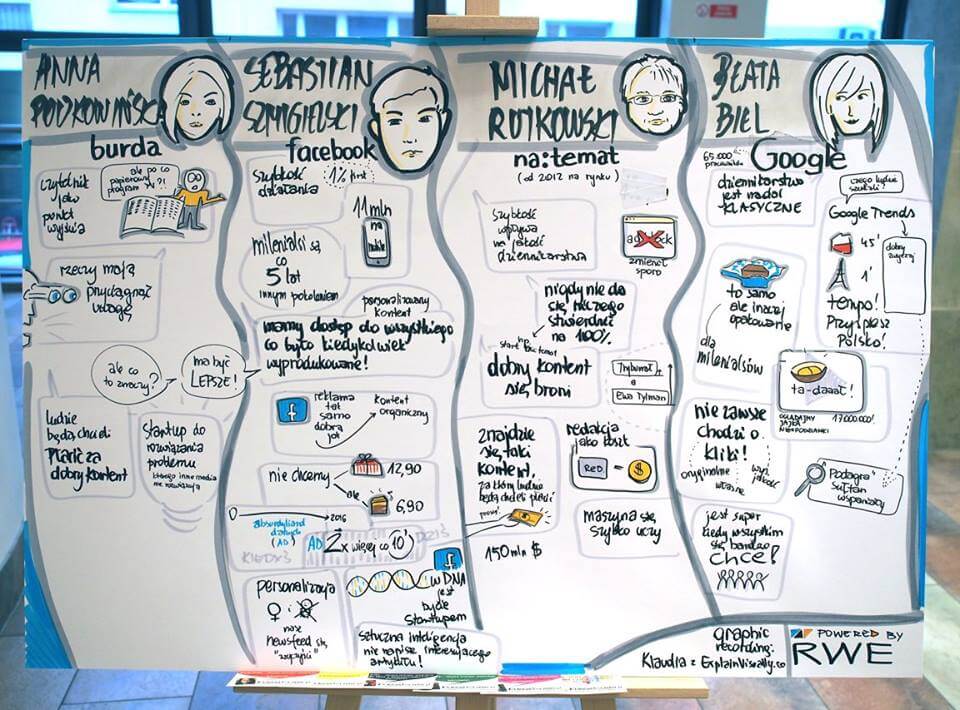 ANNA
PODKOWIŃSKA
burda
czytelnik
jako
punkt
wyjścia
ale po co
papierowy
program TV?!
rzeczy mają
przyciągnąć
uwagę
ale co
to znaczy?
ma być
LEPSZE!
ludzie
będą chcieli
płacić za
dobry kontent
startup do
rozwiązania
problemu
którego inne media
nie rozwiązują
SEBASTIAN
SZMIGIELSKI
facebook
szybkość
działania
1%
11 mln
na
mobile
milenialsi są
co
5 lat
innym pokoleniem
personalizowany
kontent
mamy dostęp do wszystkiego
co było kiedykolwiek
wyprodukowane!
f
reklama
tak
samo
dobra
jak
kontent
organiczny
nie chcemy
12,90
ale
6,90
0
2016
absurdyliard
danych
(AD)
KIEDYŚ
AD
2x więcej co 10'
DZIŚ
personalizacja
♀ i
nasz
newsfeed się
"czyści"
f
w DNA
jest
bycie
startupem
sztuczna inteligencja
nie napisze interesującego
artykułu!
MICHAŁ
ROTKOWSKI
na:temat
(od 2012 na rynku)
szybkość
wpływa
na jakość
dziennikarstwa
ad block
zmienił
sporo
nigdy nie da
się niczego
stwierdzić
na 100%
dobry kontent
się broni
Trybunał
a
Ewa Tylman
znajdzie
się taki
kontent,
za który ludzie
będą chcieli płacić
150 mln $
redakcja
jako koszt
RED
=
$
maszyna się
szybko uczy
BEATA
BIEL
Google
65.000
dziennikarstwo
jest nadal
KLASYCZNE
czego ludzie
szukali?
Google Trends
45'
1'
tempo!
Przyspiesz
Polsko!
to samo
ale inaczej
opakowane
dla
milenialsów
ta-daaat!
17.000.000!
nie zawsze
chodzi o
kliki!
oryginalne
własne
Podagra
Sułtan
wspaniały
jest super
kiedy wszystkim
się bardzo
CHCE!
graphic
recording:
Klaudia z ExplainVisually.co
POWERED BY
RWE